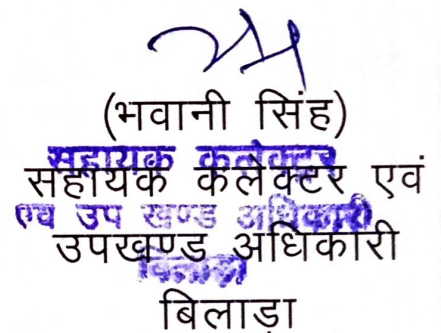 (भवानी सिंह)
सहायक कलेक्टर
सहायक कलेक्टर एवं
एवं उप खण्ड अधिकारी
उपखण्ड अधिकारी
बिलाड़ा
बिलाड़ा